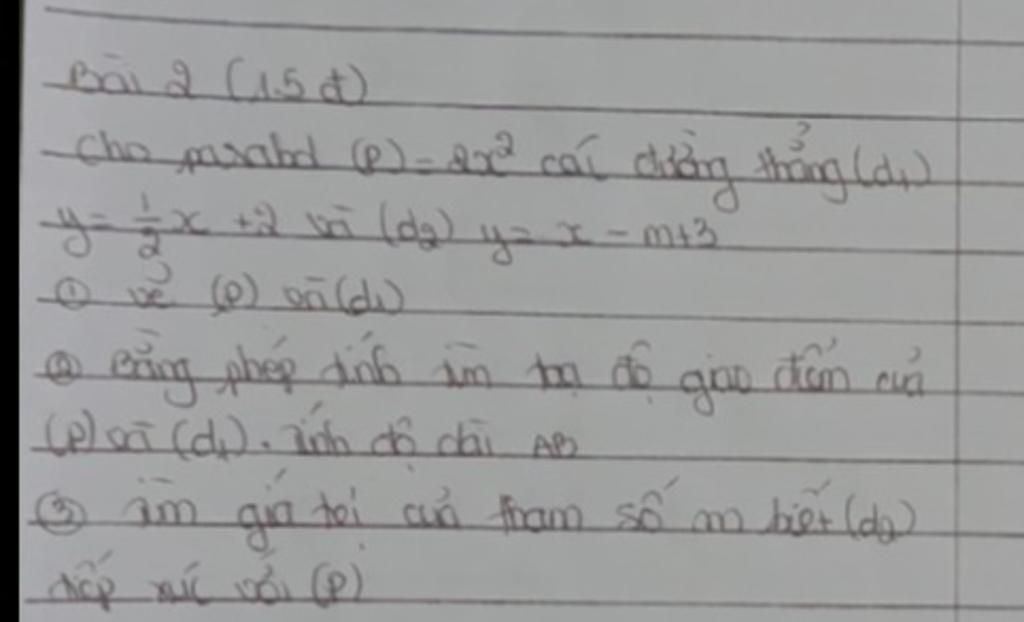 Bài 2 (1.5 đ)
Cho parabol (P) = 2x² các đường thẳng (d₁)
y = 1/2 x + 2 và (d₂) y = x - m + 3
① vẽ (P) và (d₁)
② Bằng phép tính tìm toạ độ giao điểm của
(P) và (d₁). Tính độ dài AB
③ Tìm giá trị của tham số m biết (d₂)
tiếp xúc với (P)